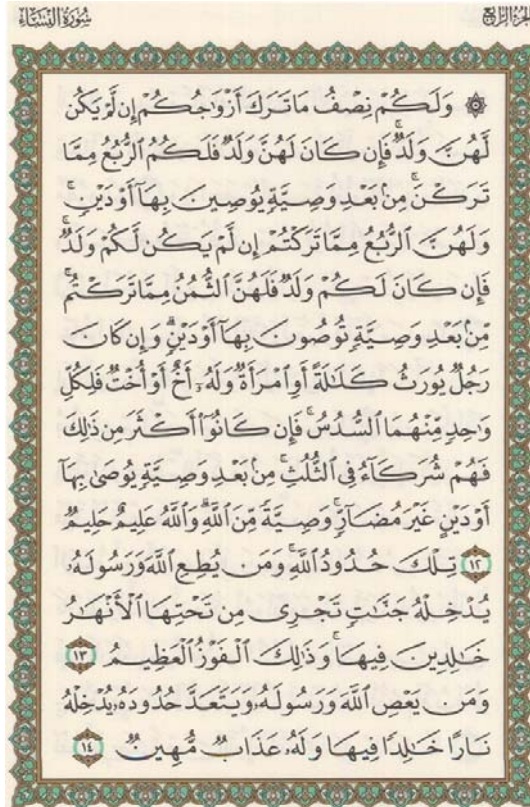 الجزء الرابع
سورة النساء
۞ وَلَكُمْ نِصْفُ مَا تَرَكَ أَزْوَٰجُكُمْ إِن لَّمْ يَكُن
لَّهُنَّ وَلَدٌ ۚ فَإِن كَانَ لَهُنَّ وَلَدٌ فَلَكُمُ ٱلرُّبُعُ مِمَّا
تَرَكْنَ ۚ مِنۢ بَعْدِ وَصِيَّةٍ يُوصِينَ بِهَآ أَوْ دَيْنٍ ۚ
وَلَهُنَّ ٱلرُّبُعُ مِمَّا تَرَكْتُمْ إِن لَّمْ يَكُن لَّكُمْ وَلَدٌ ۚ
فَإِن كَانَ لَكُمْ وَلَدٌ فَلَهُنَّ ٱلثُّمُنُ مِمَّا تَرَكْتُم ۚ
مِّنۢ بَعْدِ وَصِيَّةٍ تُوصُونَ بِهَآ أَوْ دَيْنٍ ۗ وَإِن كَانَ
رَجُلٌ يُورَثُ كَلَٰلَةً أَوِ ٱمْرَأَةٌ وَلَهُۥٓ أَخٌ أَوْ أُخْتٌ فَلِكُلِّ
وَٰحِدٍ مِّنْهُمَا ٱلسُّدُسُ ۚ فَإِن كَانُوٓا۟ أَكْثَرَ مِن ذَٰلِكَ
فَهُمْ شُرَكَآءُ فِى ٱلثُّلُثِ ۚ مِنۢ بَعْدِ وَصِيَّةٍ يُوصَىٰ بِهَآ
أَوْ دَيْنٍ غَيْرَ مُضَآرٍّ ۚ وَصِيَّةً مِّنَ ٱللَّهِ ۗ وَٱللَّهُ عَلِيمٌ حَلِيمٌ
١٢ تِلْكَ حُدُودُ ٱللَّهِ ۚ وَمَن يُطِعِ ٱللَّهَ وَرَسُولَهُۥ
يُدْخِلْهُ جَنَّٰتٍ تَجْرِى مِن تَحْتِهَا ٱلْأَنْهَٰرُ
خَٰلِدِينَ فِيهَا ۚ وَذَٰلِكَ ٱلْفَوْزُ ٱلْعَظِيمُ ١٣
وَمَن يَعْصِ ٱللَّهَ وَرَسُولَهُۥ وَيَتَعَدَّ حُدُودَهُۥ يُدْخِلْهُ
نَارًا خَٰلِدًا فِيهَا وَلَهُۥ عَذَابٌ مُّهِينٌ ١٤